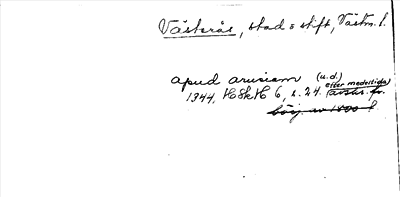 Västerås, stad o stift, Västm. l.
apud arusiam (u.d.)
efter medeltida
1344, HSkH 6, s. 24. (avskr. fr.
börj. av 1500 t